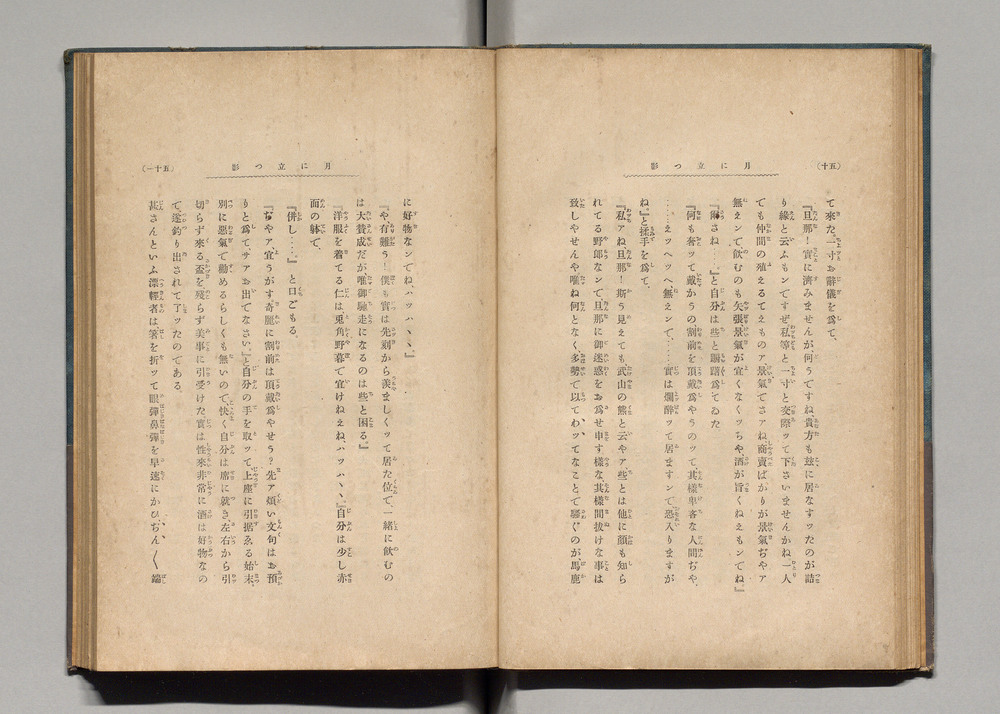 (五十)
月に立つ影
て來た。一寸お辭儀を爲て、
『旦那！實に濟みませんが、何うですね貴方も玆に居なすッたのが詰
り緣と云ふもンですぜ、私等と一寸と交際ッて下さいませんかね一人
でも仲間の殖えるてえものア景氣でさアね商賣ばかりが景氣ぢやア
無えンで、飮むのも矢張景氣が宜くなくッちや、酒が旨くねえもンでね』
『爾さね……。』と自分は些と躊躇爲てゐた
『何も奢ッて戴かうの割前を頂戴爲やうのッて其樣卑吝な人間ぢや、
……えッヘッヘ無えンで、……實は爛醉ッて居ますンで恐入りますが
ね。』と揉手を爲て、
『私アね、旦那！斯う見えても武山の熊と云やア、些とは他に顏も知ら
れてる野郞なンで旦那に御迷惑をお爲せ申す樣な其樣間拔けな事は
致しやせんや唯ね何となく、多勢で以てわッてなことで騷ぐのが、馬鹿
月に立つ影
(五十一)
に好物なンでね、ハッハヽヽ』
『や、有難う！僕も實は先刻から羨ましくッて居た位で、一緖に飮むの
は大賛成だが、唯御馳走になるのは些と困る。』
『洋服を着てる仁は兎角野暮で宜けねえね、ハッハヽヽ。』自分は少し赤
面の躰で、
『併し……。』と口ごもる。
『ぢやア、宜うがす奇麗に割前は頂戴爲やせう？先ア煩い文句はお預
りと爲て、サアお出でなさい。』と自分の手を取ッて上座に引据ゑる始末
別に惡氣で勸めるらしくも無いので、快く自分は席に就き、左右から引
切らず來る盃を殘らず美事に引受けた實は性來非常に酒は好物なの
で、遂釣り出されて了ッたのである。
甚さんといふ漂輕者は箸を折ッて眼彈鼻彈を早速にかひぢん〱鑷